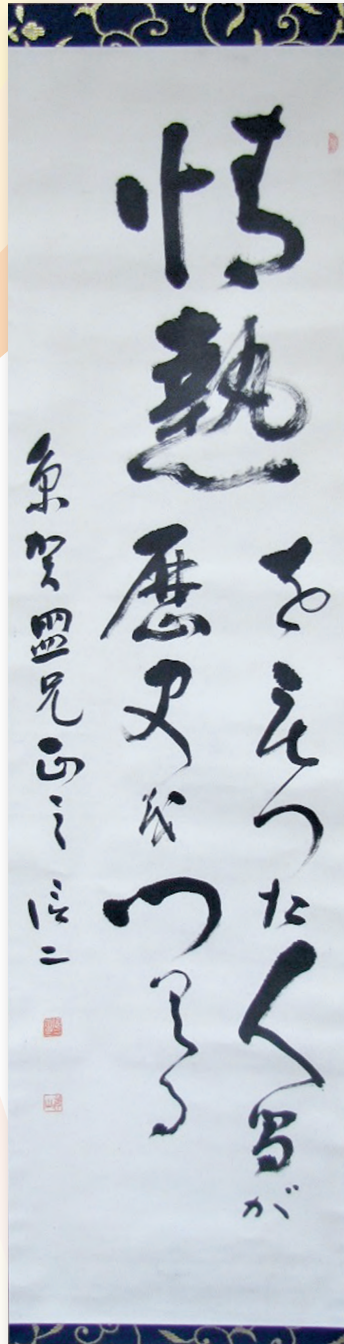 情熱
をもつた人間が
歴史をつくる
賀盟兄正之 信二